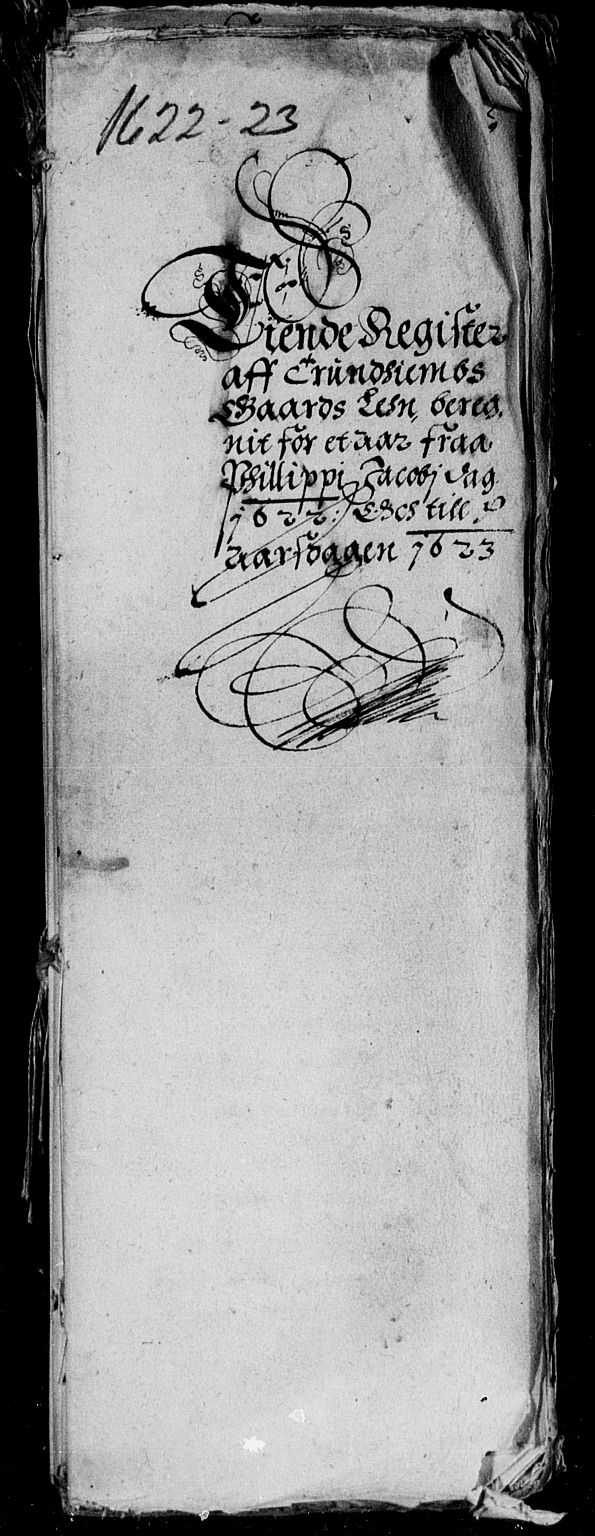 1622-23
Tiende Register
aff Trundhiembs
Gaards Lehn, bereg,
nit för et aar fraa
Phillippi Jacobj dag
1622: Och till
aarsdagen 1623